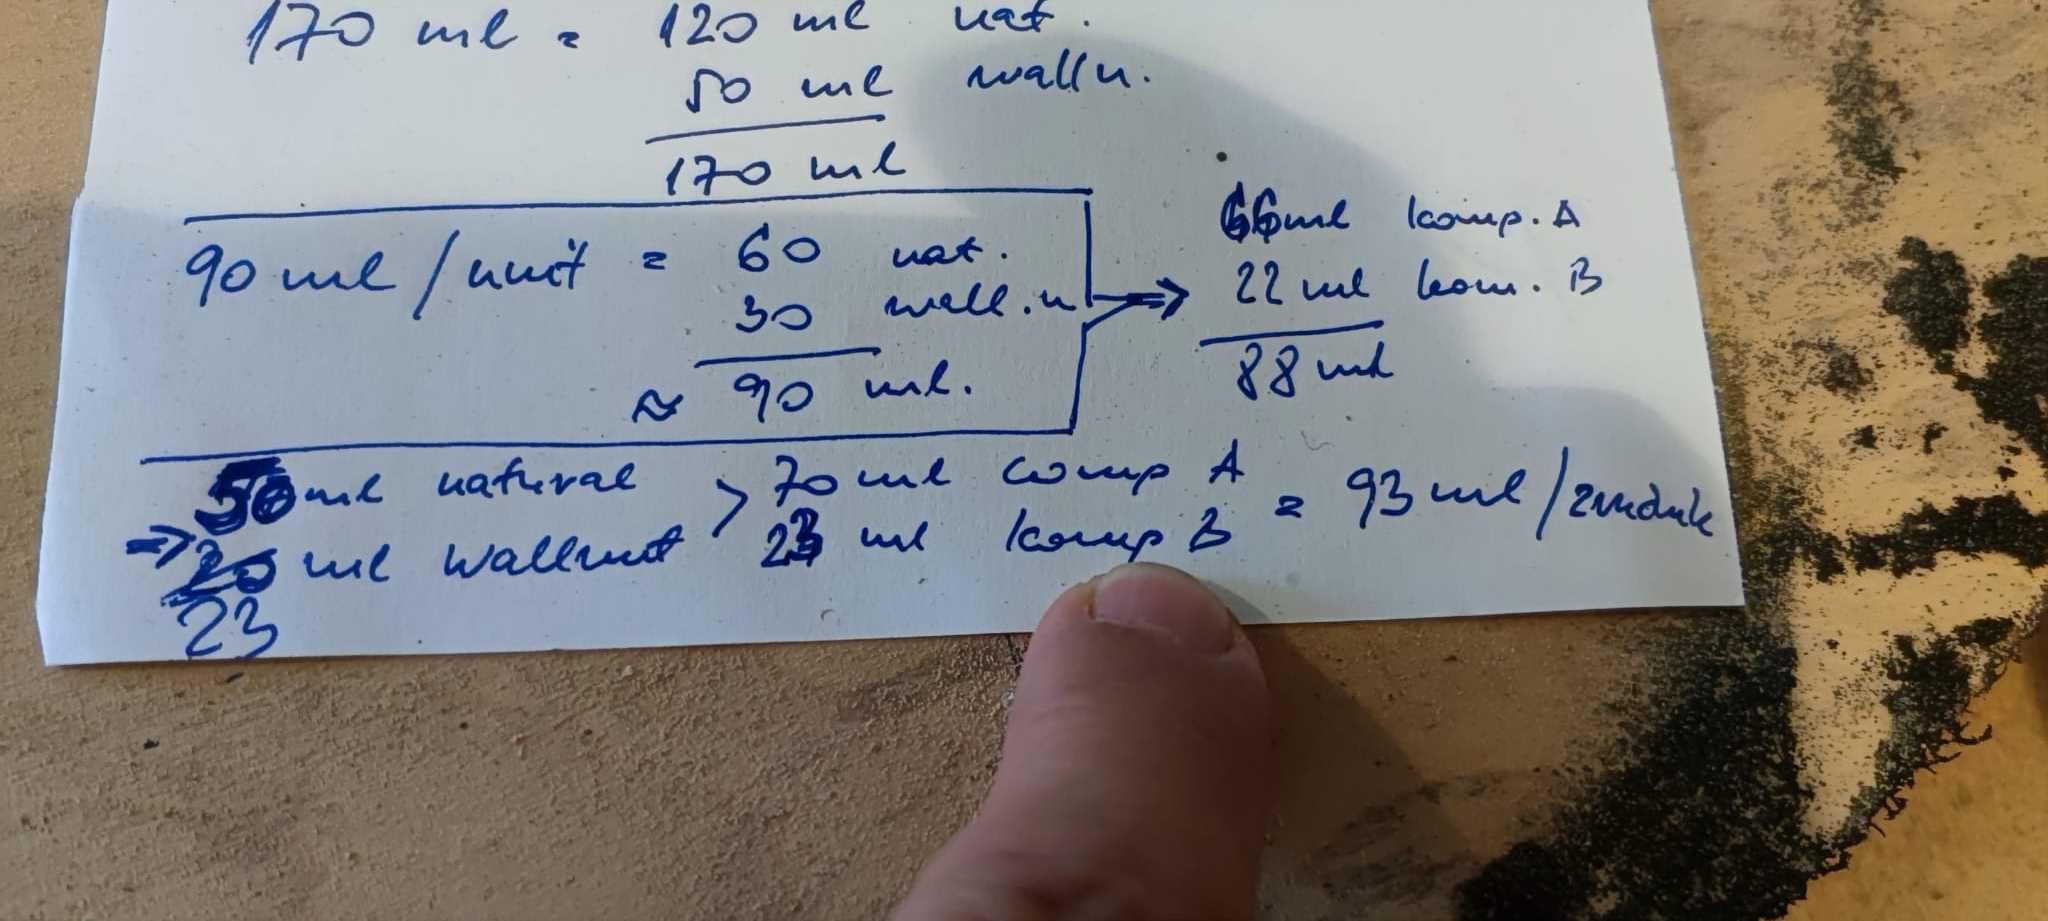 170 ml = 120 ml nat.
50 ml walln.
170 ml
90 ml / unit = 60 nat.
30 wall.n
≈ 90 ml.
66 ml komp. A
22 ml kom. B
88 ml
50 ml natural > 70 ml comp A = 93 ml /
⇒ 20 ml wallnut 23 ml komp B
23